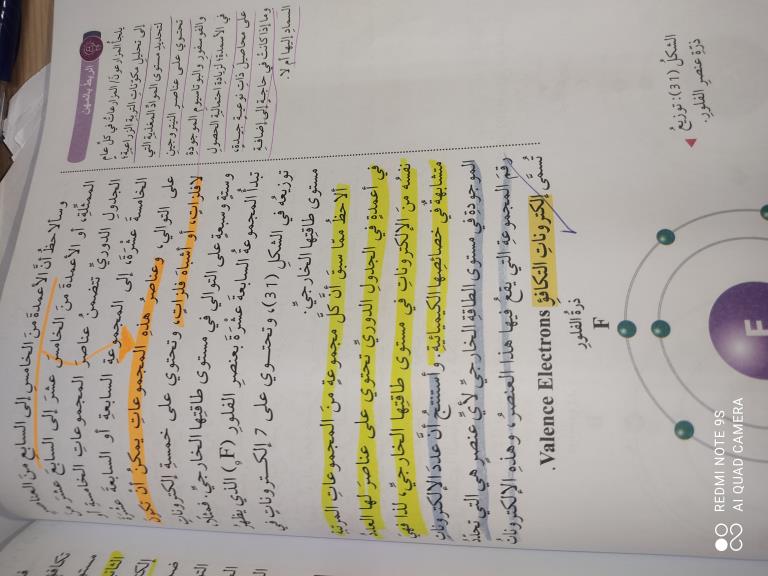 وسألاحظُ أنَّ الأعمدةَ منَ الخامسِ إلى السابعِ منَ
الممثّلةِ، أو الأعمدةَ منَ الخامس عشرَ إلى السابع عشرَ
الجدولِ الدوريِّ تتضمنُ عناصرَ المجموعاتِ الخامسةِ أو
الخامسةَ عشْرةَ، إلى المجموعةِ السابعةِ أو السابعةَ عشْرةَ
على التوالي. وعناصرُ هذه المجموعاتِ يمكنُ أن تكونَ
لافلزاتٍ، أو أشباهَ فلزاتٍ، وتحتوي على خمسةِ إلكتروناتٍ
وستةٍ وسبعةٍ على التوالي في مستوى طاقتها الخارجيِّ. فمثلًا،
تبدأُ المجموعةُ السابعةَ عشْرةَ بعنصرِ الفلورِ (F) الذي يظهرُ
توزيعُه في الشكلِ (31)، وتحتوي على 7 إلكتروناتٍ في
مستوى طاقتها الخارجيِّ.
ألاحظُ ممّا سبقَ أنَّ كلَّ مجموعةٍ منَ المجموعاتِ المرتبةِ
في أعمدةٍ في الجدولِ الدوريِّ تحتوي على عناصرَ لها العددُ
نفسُه منَ الإلكتروناتِ في مستوى طاقتِها الخارجيِّ، لذا فهيَ
متشابهةٌ في خصائصِها الكيميائيةِ. وأستنتجُ أنَّ عددَ الإلكتروناتِ
الموجودةِ في مستوى الطاقةِ الخارجيِّ لأيِّ عنصرٍ هي التي تحدّدُ
رقمَ المجموعةِ التي يقعُ فيها هذا العنصرُ، وهذهِ الإلكتروناتُ
تُسمّى إلكتروناتِ التكافؤِ Valence Electrons.
ذرةُ الفلورِ
F
F
الربط بالمهن
يلجأُ المزارعونَ/ المزارعاتُ في كلِّ عامٍ
إلى تحليلِ مكوّناتِ التربةِ الزراعيةِ؛
لتحديدِ مستوى الموادِّ المغذيةِ التي
تحتوي على عناصرِ النيتروجينِ
والفوسفورِ والبوتاسيومِ الموجودةِ
في الأسمدةِ؛ لزيادةِ احتماليةِ الحصولِ
على محاصيلَ ذاتِ نوعيةٍ جيدةٍ،
وما إذا كانتْ في حاجةٍ إلى إضافةِ
السمادِ إليها أم لا.
الشكلُ (31): توزيعُ
ذرّةِ عنصرِ الفلورِ.
REDMI NOTE 9S
AI QUAD CAMERA